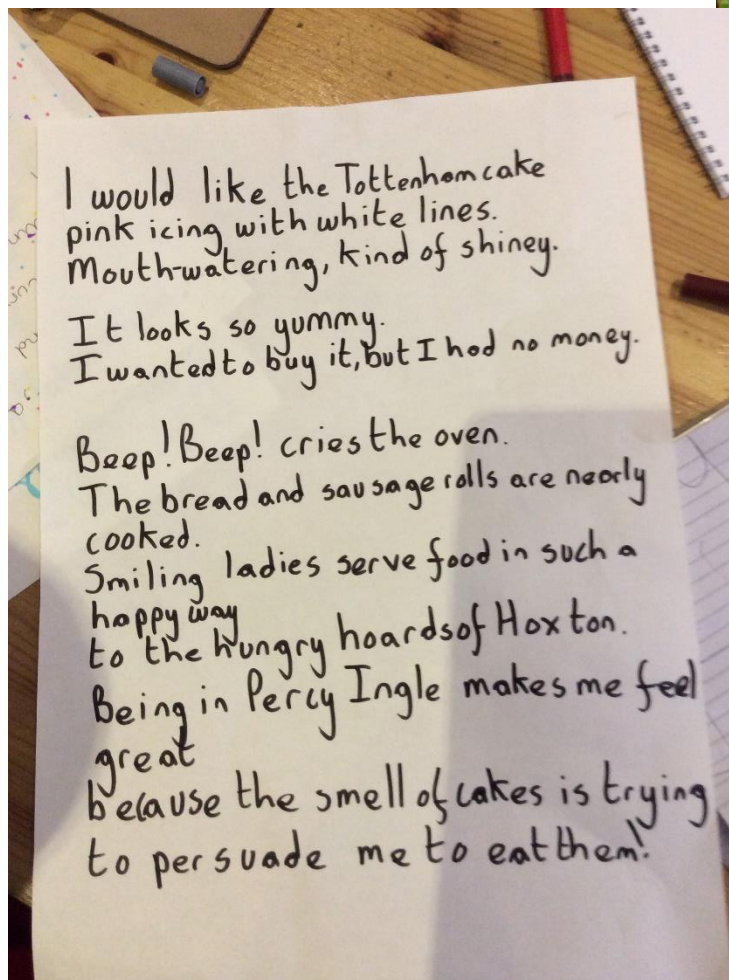 I would like the Tottenham cake
pink icing with white lines.
Mouth-watering, kind of shiney.
It looks so yummy.
I wanted to buy it, but I had no money.
Beep! Beep! cries the oven.
The bread and sausage rolls are nearly
cooked.
Smiling ladies serve food in such a
happy way
to the hungry hoards of Hoxton.
Being in Percy Ingle makes me feel
great
because the smell of cakes is trying
to persuade me to eat them!